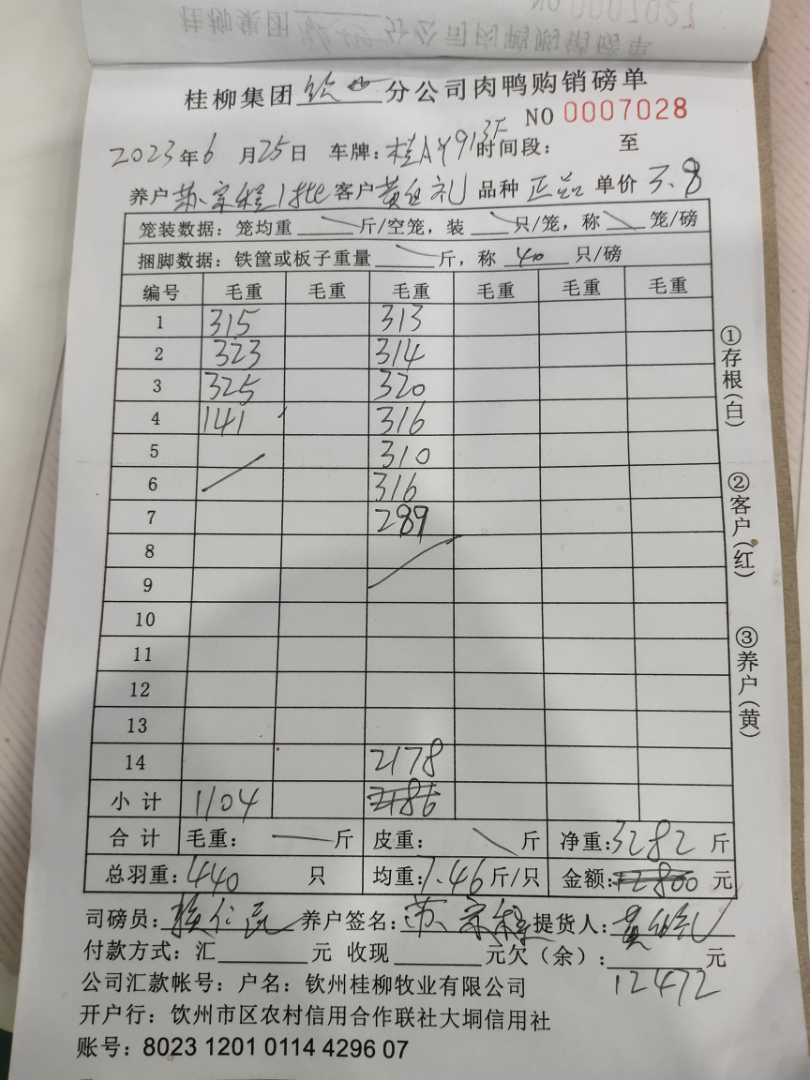 桂柳集团 钦 分公司肉鸭购销磅单
NO 0007028
2023年6月25日 车牌:桂AY913F 时间段: 至
养户 苏宗程1批 客户 黄 礼 品种 正品 单价 3.8
笼装数据: 笼均重 斤/空笼, 装 只/笼, 称 笼/磅
捆脚数据: 铁筐或板子重量 斤, 称 40 只/磅
编号 毛重 毛重 毛重 毛重 毛重 毛重
1 315 313
2 323 314
3 325 320
4 141 316
5 310
6 316
7 289
8
9
10
11
12
13
14 2178
小计 1104
合计 毛重: 斤 皮重: 斤 净重:3282斤
总羽重:440 只 均重:7.46斤/只 金额:12800元
司磅员: 养户签名:苏宗程 提货人:黄 礼
付款方式: 汇 元 收现 元欠(余): 元
12472
公司汇款帐号: 户名: 钦州桂柳牧业有限公司
开户行: 钦州市区农村信用合作联社大垌信用社
账号: 8023 1201 0114 4296 07
①存根(白)
②客户(红)
③养户(黄)